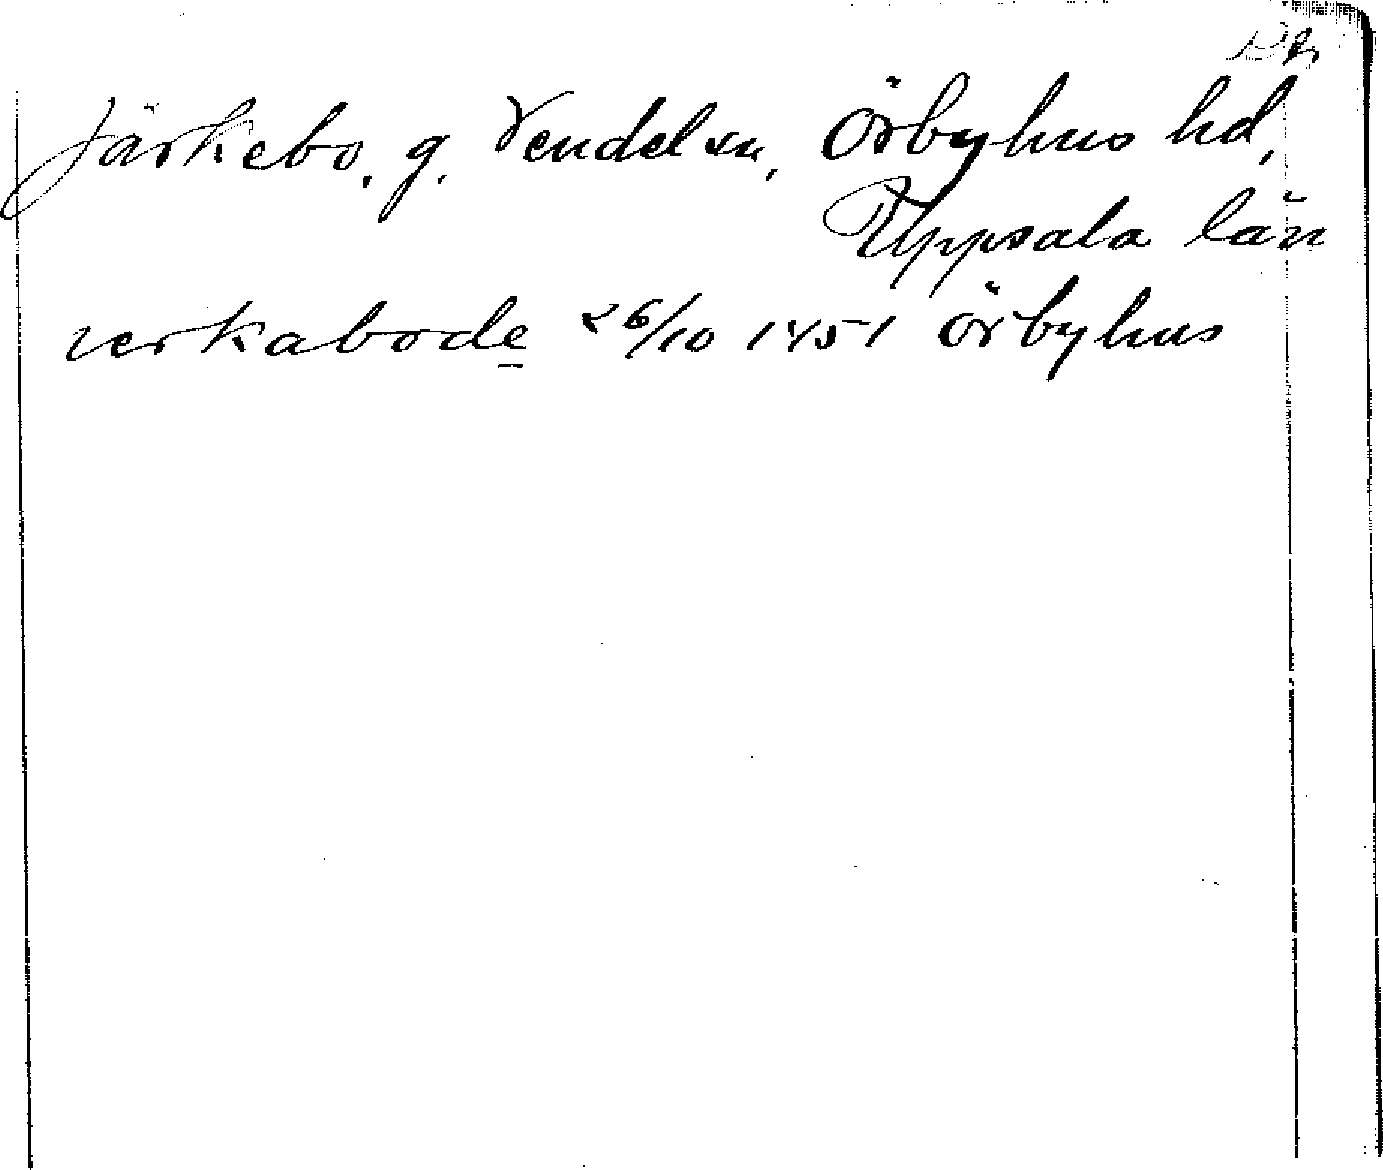 Järkebo, g. Vendel sn, Örbyhus hd,
Uppsala län
verkabode 26/10 1451 Örbyhus